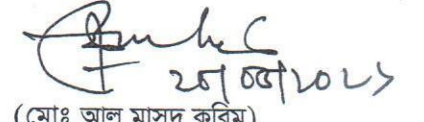 ২৫/০৫/২০২১
(মোঃ আল মাসুদ করিম)